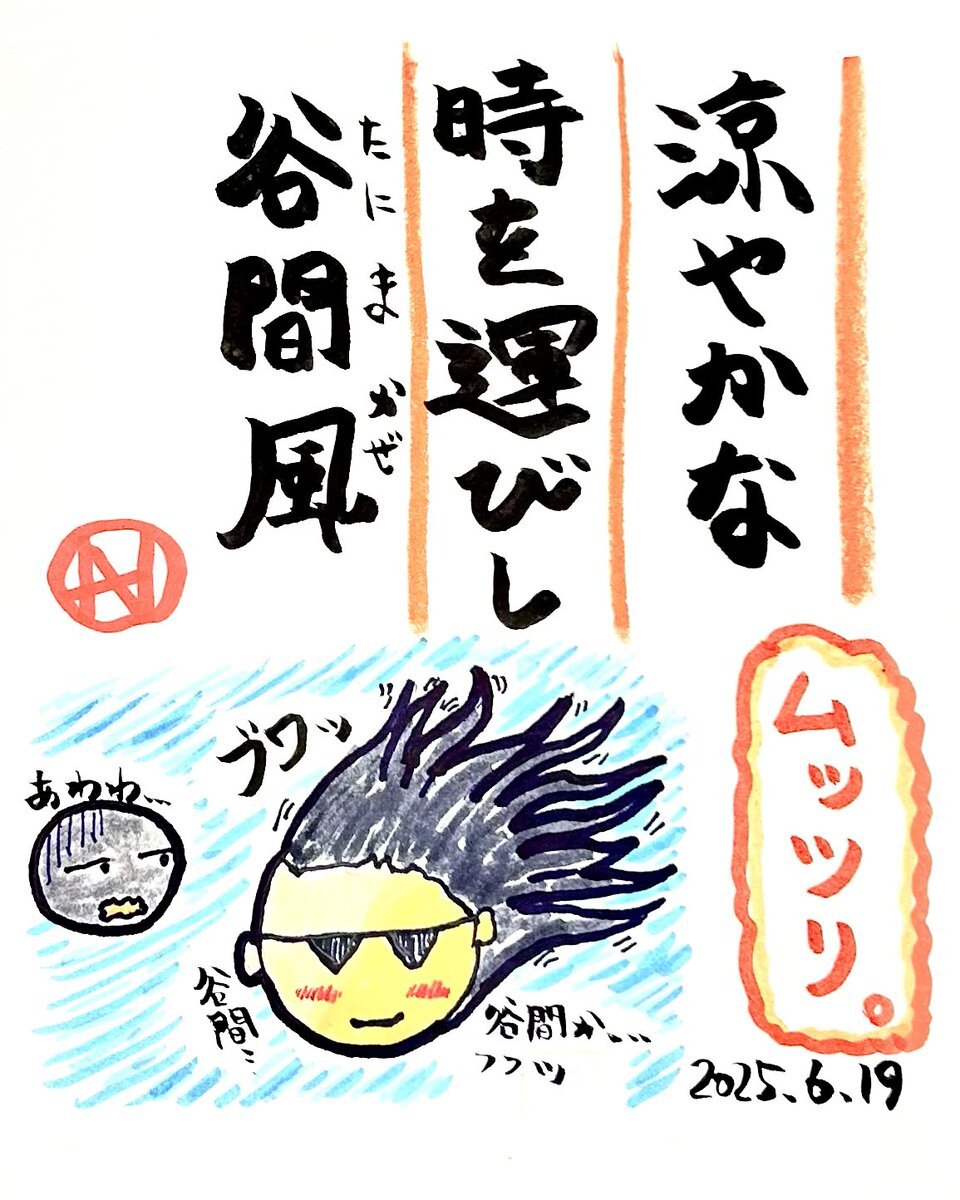 涼やかな
時を運びし
谷間風
たにまかぜ
ムッツリ。
ブワッ
あわわ…
谷間…
谷間か……
フフッ
2025.6.19